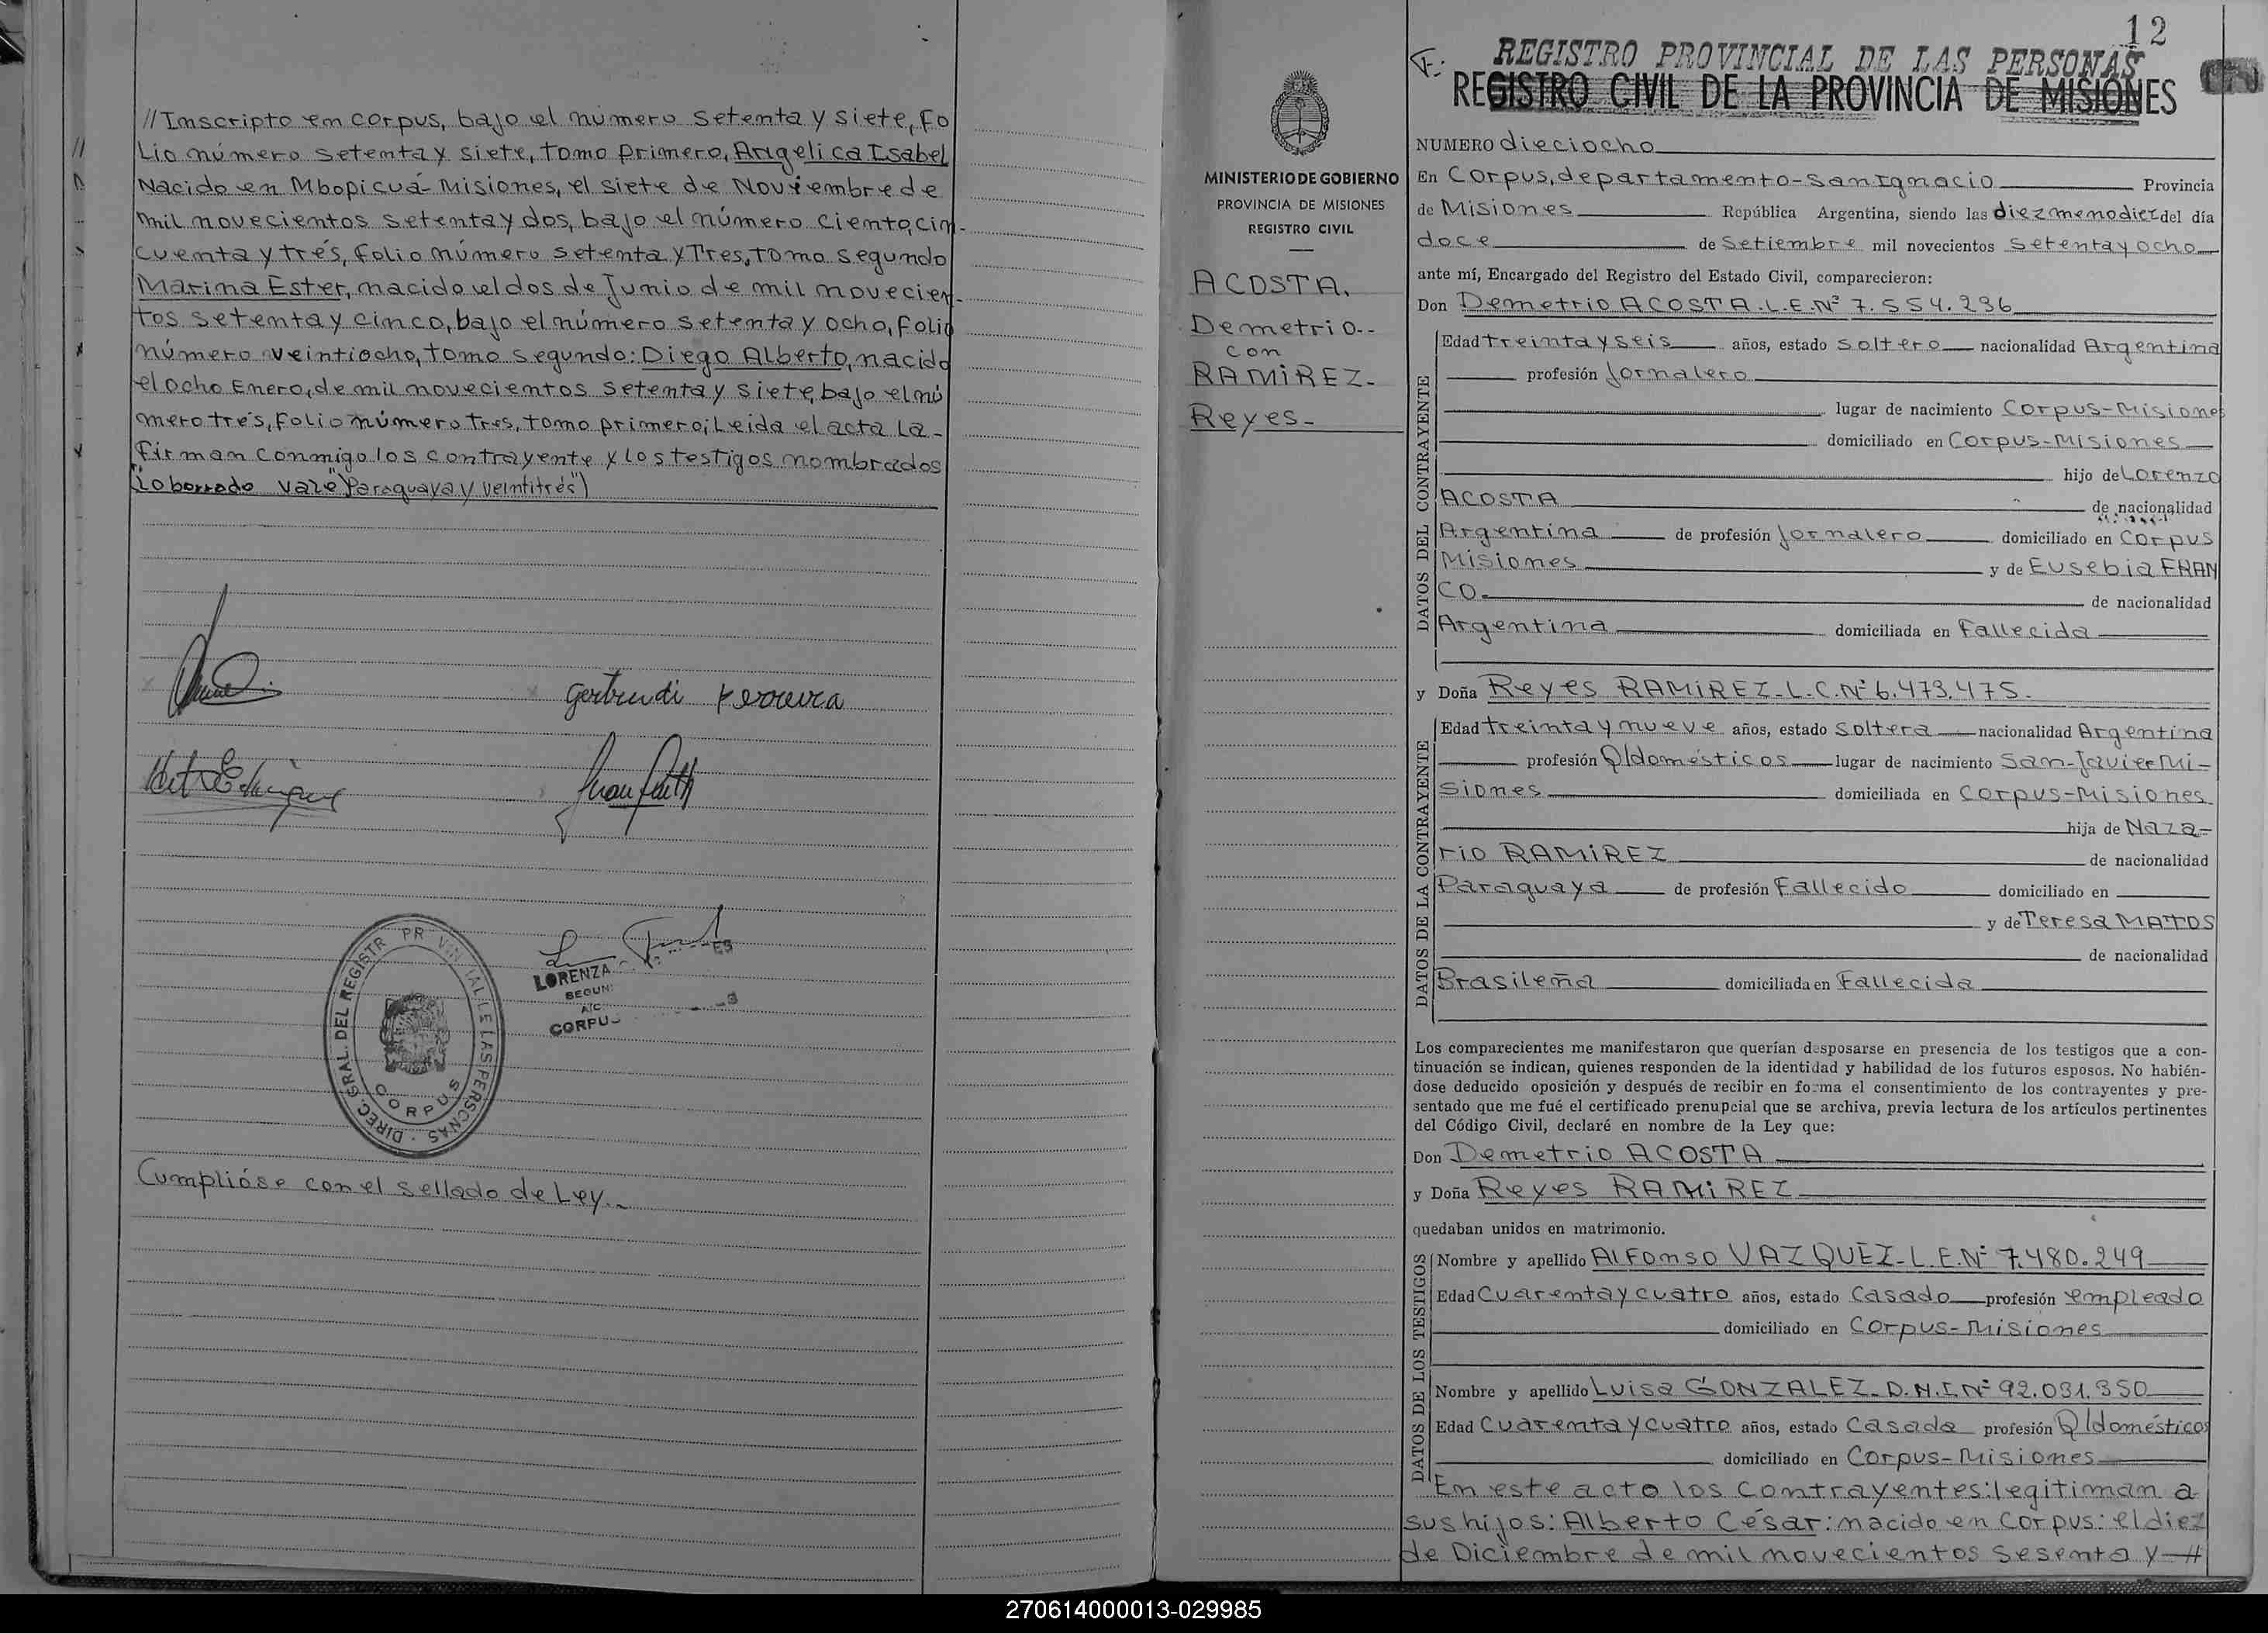 //Inscripto en corpus, bajo el número setenta y siete, Fo
lio número setenta y siete, tomo primero, Angelica Isabel
Nacido en Mbopicuá-Misiones, el siete de Noviembre de
mil novecientos setenta y dos, bajo el número ciento, cin-
cuenta y trés, folio número setenta y Tres, tomo segundo
Marina Ester, nacido el dos de Junio de mil novecien-
tos setenta y cinco, bajo el número setenta y ocho, folio
número veintiocho, tomo segundo: Diego Alberto, nacido
el ocho Enero, de mil novecientos setenta y siete, bajo el nú
mero trés, folio número tres, tomo primero; Leida el acta la-
firman conmigo los contrayente y los testigos nombrados
(lo borrado vale "Paraguaya y veintitrés")
Gertrudi Ferreira
DIREC. GRAL. DEL REGISTR PR VIN IAL DE LAS PERSONAS
CORPUS
LORENZA
SEGUN
A/C
CORPUS
Cumplióse con el sellado de Ley.-
12
REGISTRO PROVINCIAL DE LAS PERSONAS
REGISTRO CIVIL DE LA PROVINCIA DE MISIONES
MINISTERIO DE GOBIERNO
PROVINCIA DE MISIONES
REGISTRO CIVIL
ACOSTA,
Demetrio.-
con
RAMIREZ-
Reyes-
NUMERO dieciocho
En Corpus, departamento-San Ignacio Provincia
de Misiones República Argentina, siendo las diez menos diez del día
doce de Setiembre mil novecientos setenta y ocho
ante mí, Encargado del Registro del Estado Civil, comparecieron:
Don Demetrio ACOSTA.L.E.Nº 7.554.236
DATOS DEL CONTRAYENTE
Edad treinta y seis años, estado soltero nacionalidad Argentina
profesión Jornalero
lugar de nacimiento Corpus-Misiones
domiciliado en Corpus-Misiones
hijo de Lorenzo
ACOSTA de nacionalidad
Argentina de profesión Jornalero domiciliado en Corpus
Misiones y de Eusebia FRAN
CO.- de nacionalidad
Argentina domiciliada en Fallecida
y Doña Reyes RAMIREZ-L.C.Nº 6.473.475.
DATOS DE LA CONTRAYENTE
Edad treinta y nueve años, estado soltera nacionalidad Argentina
profesión Q/domésticos lugar de nacimiento San-Javier Mi-
siones domiciliada en Corpus-Misiones
hija de Naza-
rio RAMIREZ de nacionalidad
Paraguaya de profesión Fallecido domiciliado en
y de Teresa MATOS
de nacionalidad
Brasileña domiciliada en Fallecida
Los comparecientes me manifestaron que querían desposarse en presencia de los testigos que a con-
tinuación se indican, quienes responden de la identidad y habilidad de los futuros esposos. No habién-
dose deducido oposición y después de recibir en forma el consentimiento de los contrayentes y pre-
sentado que me fué el certificado prenupcial que se archiva, previa lectura de los artículos pertinentes
del Código Civil, declaré en nombre de la Ley que:
Don Demetrio ACOSTA
y Doña Reyes RAMIREZ
quedaban unidos en matrimonio.
DATOS DE LOS TESTIGOS
Nombre y apellido Alfonso VAZQUEZ-L.E.Nº 7.480.249
Edad Cuarenta y cuatro años, estado Casado profesión empleado
domiciliado en Corpus-Misiones
Nombre y apellido Luisa GONZALEZ-D.N.I.Nº 92.031.350
Edad Cuarenta y cuatro años, estado Casada profesión Q/domésticos
domiciliado en Corpus-Misiones
En este acto los contrayentes: legitiman a
sus hijos: Alberto César: nacido en Corpus: el diez
de Diciembre de mil novecientos sesenta y-//
270614000013-029985